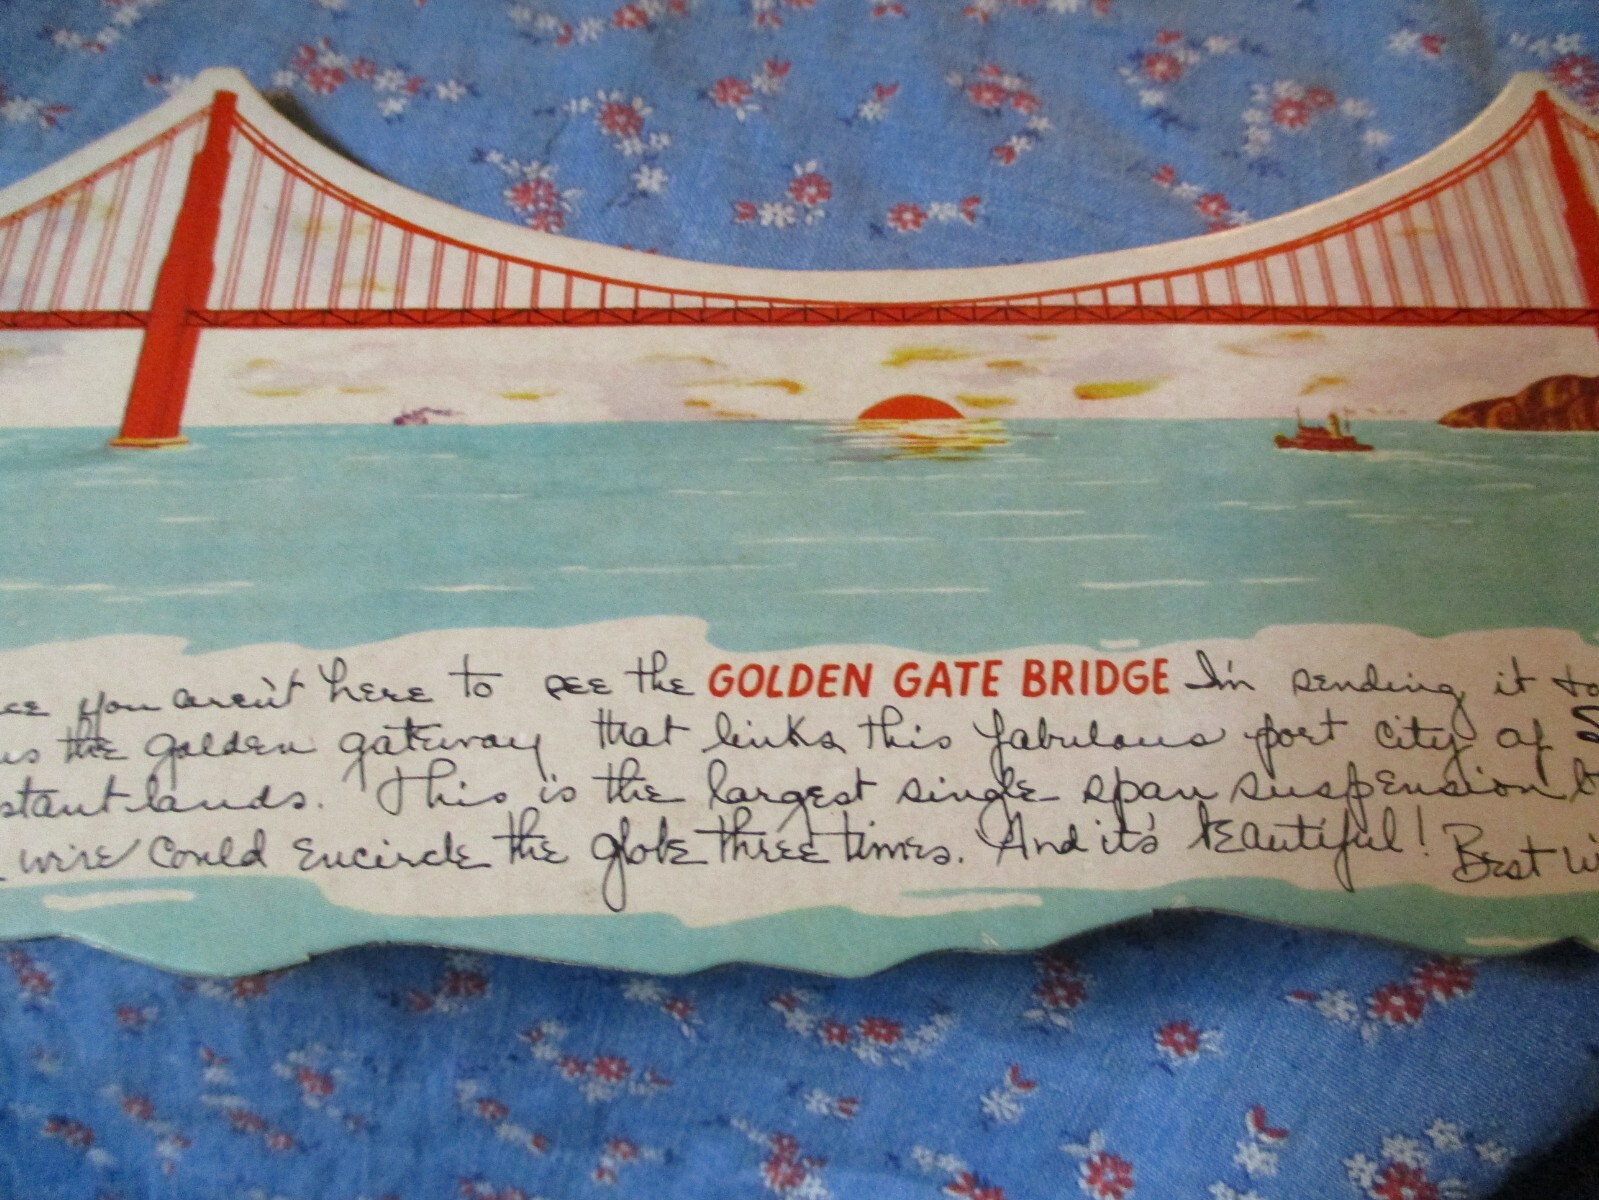 you aren't here to see the GOLDEN GATE BRIDGE I'm sending it to
the golden gateway that links this fabulous port city of
lands. This is the largest single span suspension
wire could encircle the globe three times. And it's beautiful! Best